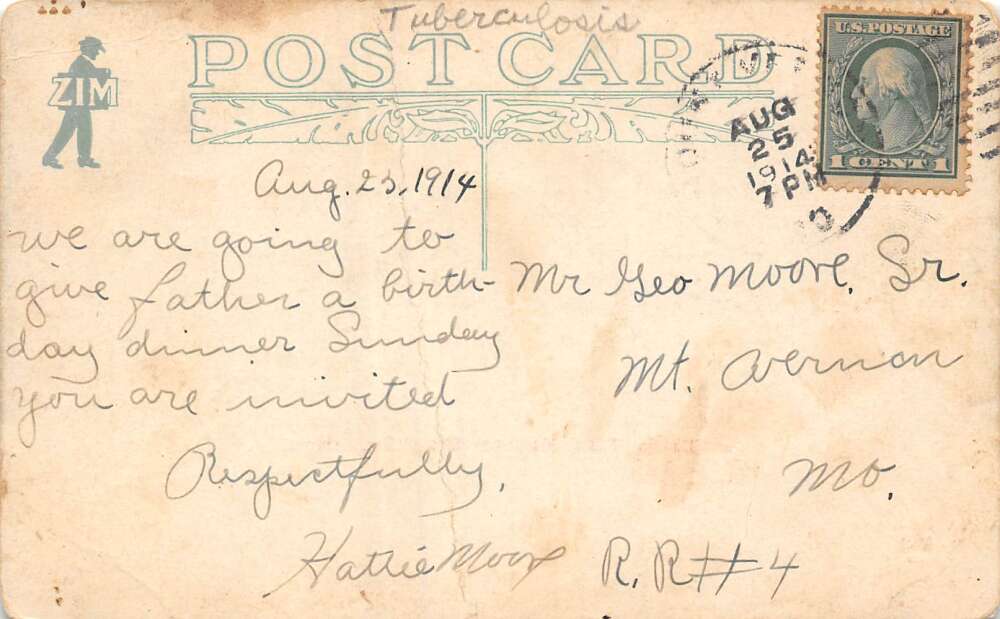 Tuberculosis
POST CARD
ZIM
U.S. POSTAGE
1 CENT 1
AUG
25
1914
7 PM
Aug. 23, 1914
we are going to
give father a birth-
day dinner Sunday
you are invited
Respectfully,
Hattie Moore
Mr Geo Moore, Sr.
Mt. Vernon
Mo.
R. R # 4